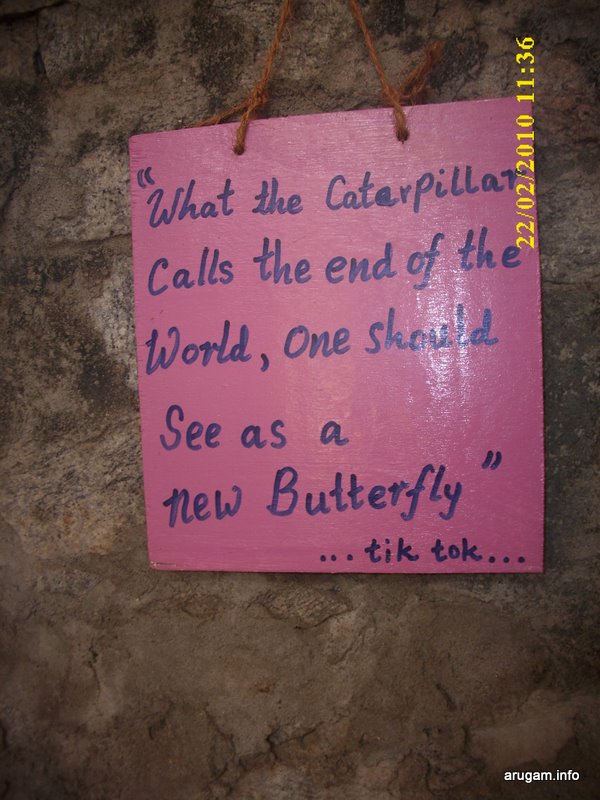 "What the Caterpillar
Calls the end of the
World, One should
See as a
new Butterfly"
...tik tok...
22/02/2010 11:36
arugam.info